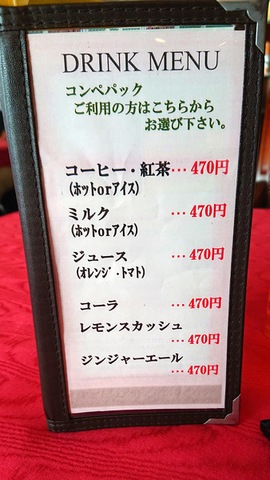 DRINK MENU
コンペパック
ご利用の方はこちらから
お選び下さい。
コーヒー・紅茶…470円
(ホットorアイス)
ミルク …470円
(ホットorアイス)
ジュース …470円
(オレンジ・トマト)
コーラ …470円
レモンスカッシュ
…470円
ジンジャーエール
…470円